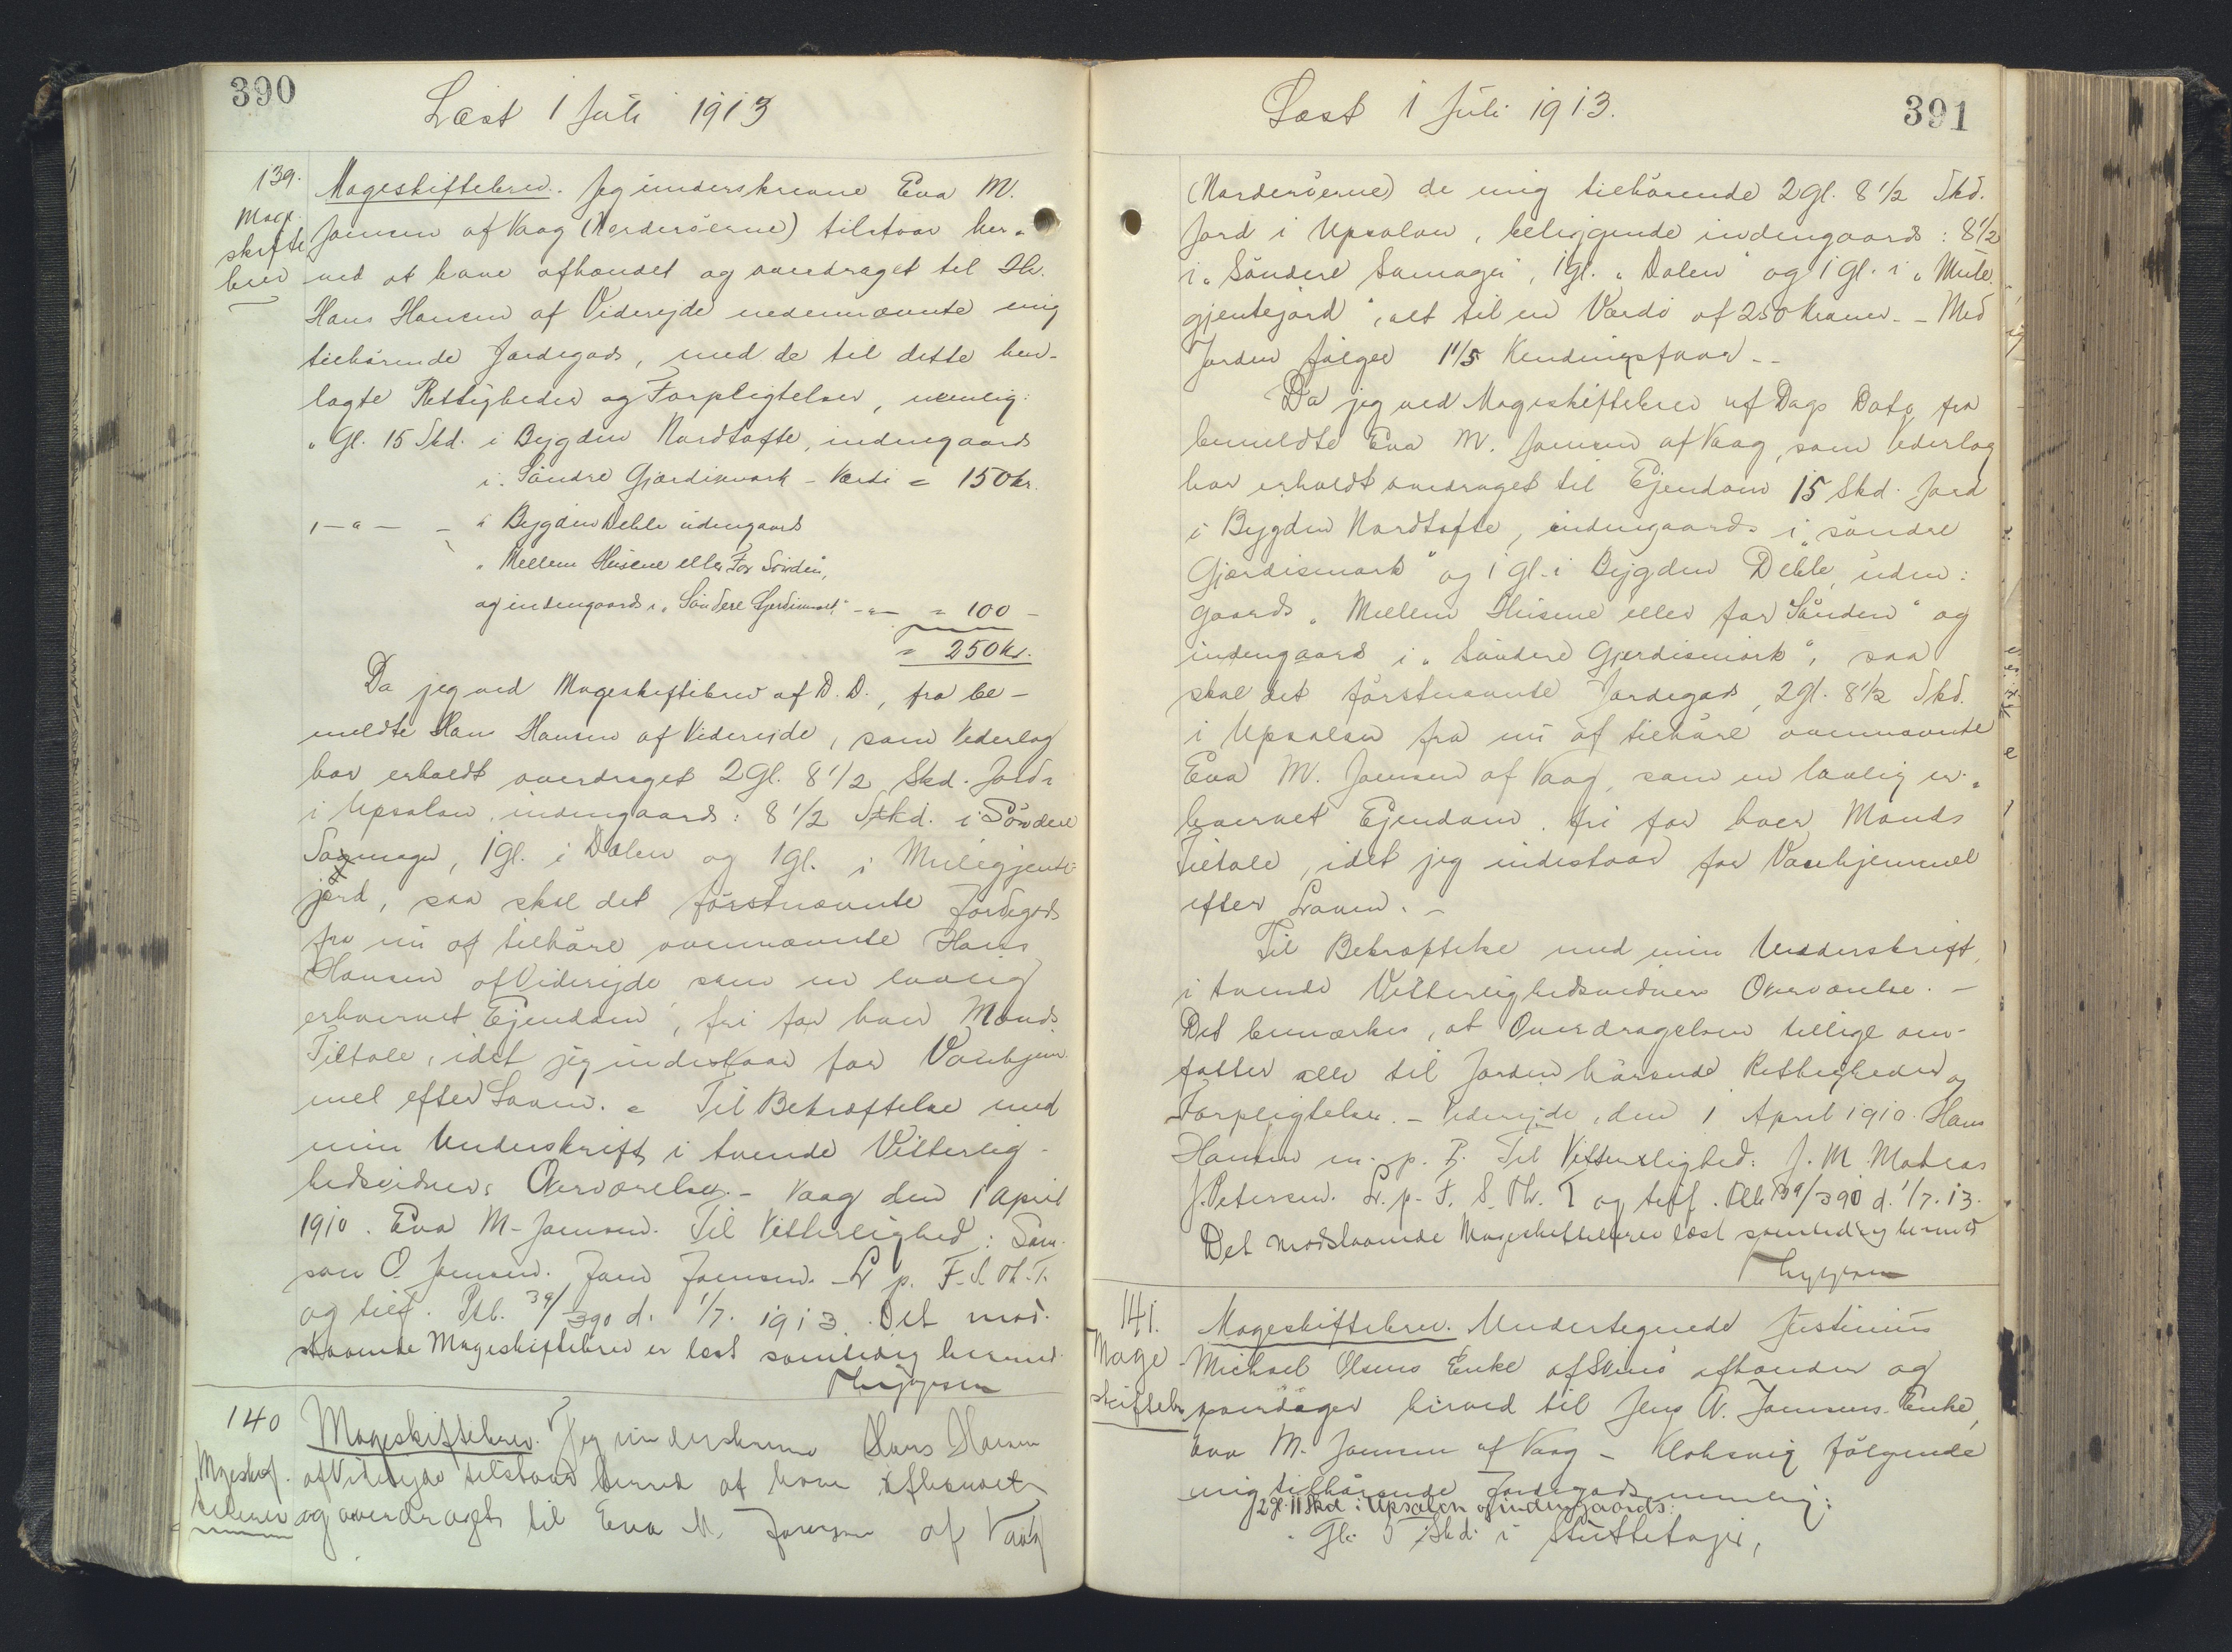 390
Læst 1 Juli 1913
139.
Mage-
skifte
brev
Mageskiftebrev. Jeg underskrevne Eva M.
Joensen af Vaag (Norderöerne) tilstaar her-
ved at have afhændet og overdraget til Hr.
Hans Hansen af Viderejde nedennævnte mig
tilhörende Jordegods, med de til dette hen-
lagte Rettigheder og Forpligtelser, nemlig:
" Gl. 15 Skd. i Bygden Nordtofte, indengaards
i Söndre Gjærdismark - Værdi = 150 kr.
1 - " - - i Bygden Deble udengaards
" Mellem Husene eller For Sönden",
og indengaards i "Söndere Gjerdismark" - " - = 100 -
= 250 kr.
Da jeg ved Mageskiftebrev af D. D., fra be-
meldte Hans Hansen af Viderejde, som Vederlag
har erholdt overdraget 2 Gl. 8 1/2 Skd. Jord
i Upsalen, indengaards: 8 1/2 Skd. i Söndere
Sammager, 1 Gl. i Dalen og 1 Gl. i Muligjente-
jord, saa skal det förstnævnte Jordegods
fra nu af tilhöre ovennævnte Hans
Hansen af Viderejde som en lovlig
erhvervet Ejendom, fri for hver Mands
Tiltale, idet jeg indestaar for Vanhjem-
mel efter Loven. = Til Bekræftelse med
min Underskrift i tvende Vitterlig-
hedsvidners Overværelse. - Vaag den 1 April
1910. Eva M. Joensen. Til Vitterlighed: Sam-
son O. Joensen. Joen Joensen. - L. p. F. S. Th. T.
og tilf. Ptb. 39/390 d. 1/7. 1913. Det mod-
staaende Mageskiftebrev er læst samtidig hermed
140
Mgeskif-
tebrev
Mageskiftebrev. Jeg underskrevne Hans Hansen
af Viderejde tilstaar herved at have afhændet
og overdraget til Eva M. Joensen af Vaag
Læst 1 Juli 1913.
391
(Norderöerne) de mig tilhörende 2 gl. 8 1/2 Skd.
Jord i Upsalen, beliggende indengaards: 8 1/2
i "Söndere Samager", 1 gl. "Dalen" og 1 gl. i "Mule-
gjentejord", alt til en Værdi af 250 Kroner. - Med
Jorden fölger 1 1/5 Kendingsfaar. -
Da jeg ved Mageskiftebrev af Dags Dato fra
bemeldte Eva M. Joensen af Vaag, som Vederlag
har erholdt overdraget til Ejendom 15 Skd. Jord
i Bygden Nordtofte, indengaards i "söndre
Gjærdismark" og 1 gl. i Bygden Deble, uden:
gaards "Mellem Husene eller for Sönden" og
indengaards i "Söndere Gjerdismark", saa
skal det förstnævnte Jordegods, 2 gl. 8 1/2 Skd.
i Upsalen fra nu af tilhöre ovennævnte
Eva M. Joensen af Vaag, som en lovlig er-
hvervet Ejendom, fri for hver Mands
Tiltale, idet jeg indestaar for Vanhjemmel
efter Loven. -
Til Bekræftelse med min Underskrift,
i tvende Vitterlighedsvidners Overværelse. -
Det bemærkes, at Overdragelsen tillige om-
fatter alle til Jorden hörende Rettigheder og
Forpligtelser. - Viderejde, den 1 April 1910. Hans
Hansen m. p. F. Til Vitterlighed: J. M. Matras
J. Petersen. L. p. F. S. Th. T og tilf. Ptb. 39/390 d. 1/7. 13.
Det modstaaende Mageskiftebrev læst samtidig hermed
141.
Mage-
skiftebr
Mageskiftebrev. Undertegnede Justinus
Michael Olsens Enke af Svinö afhænder og
overdrager herved til Jens A. Joensens Enke,
Eva M. Joensen af Vaag - Klaksvig fölgende
mig tilhörende Jordegods nemlig:
2 gl. 11 Skd i Upsalen og indengaards:
" Gl. 5 Skd. i Stuttetager,